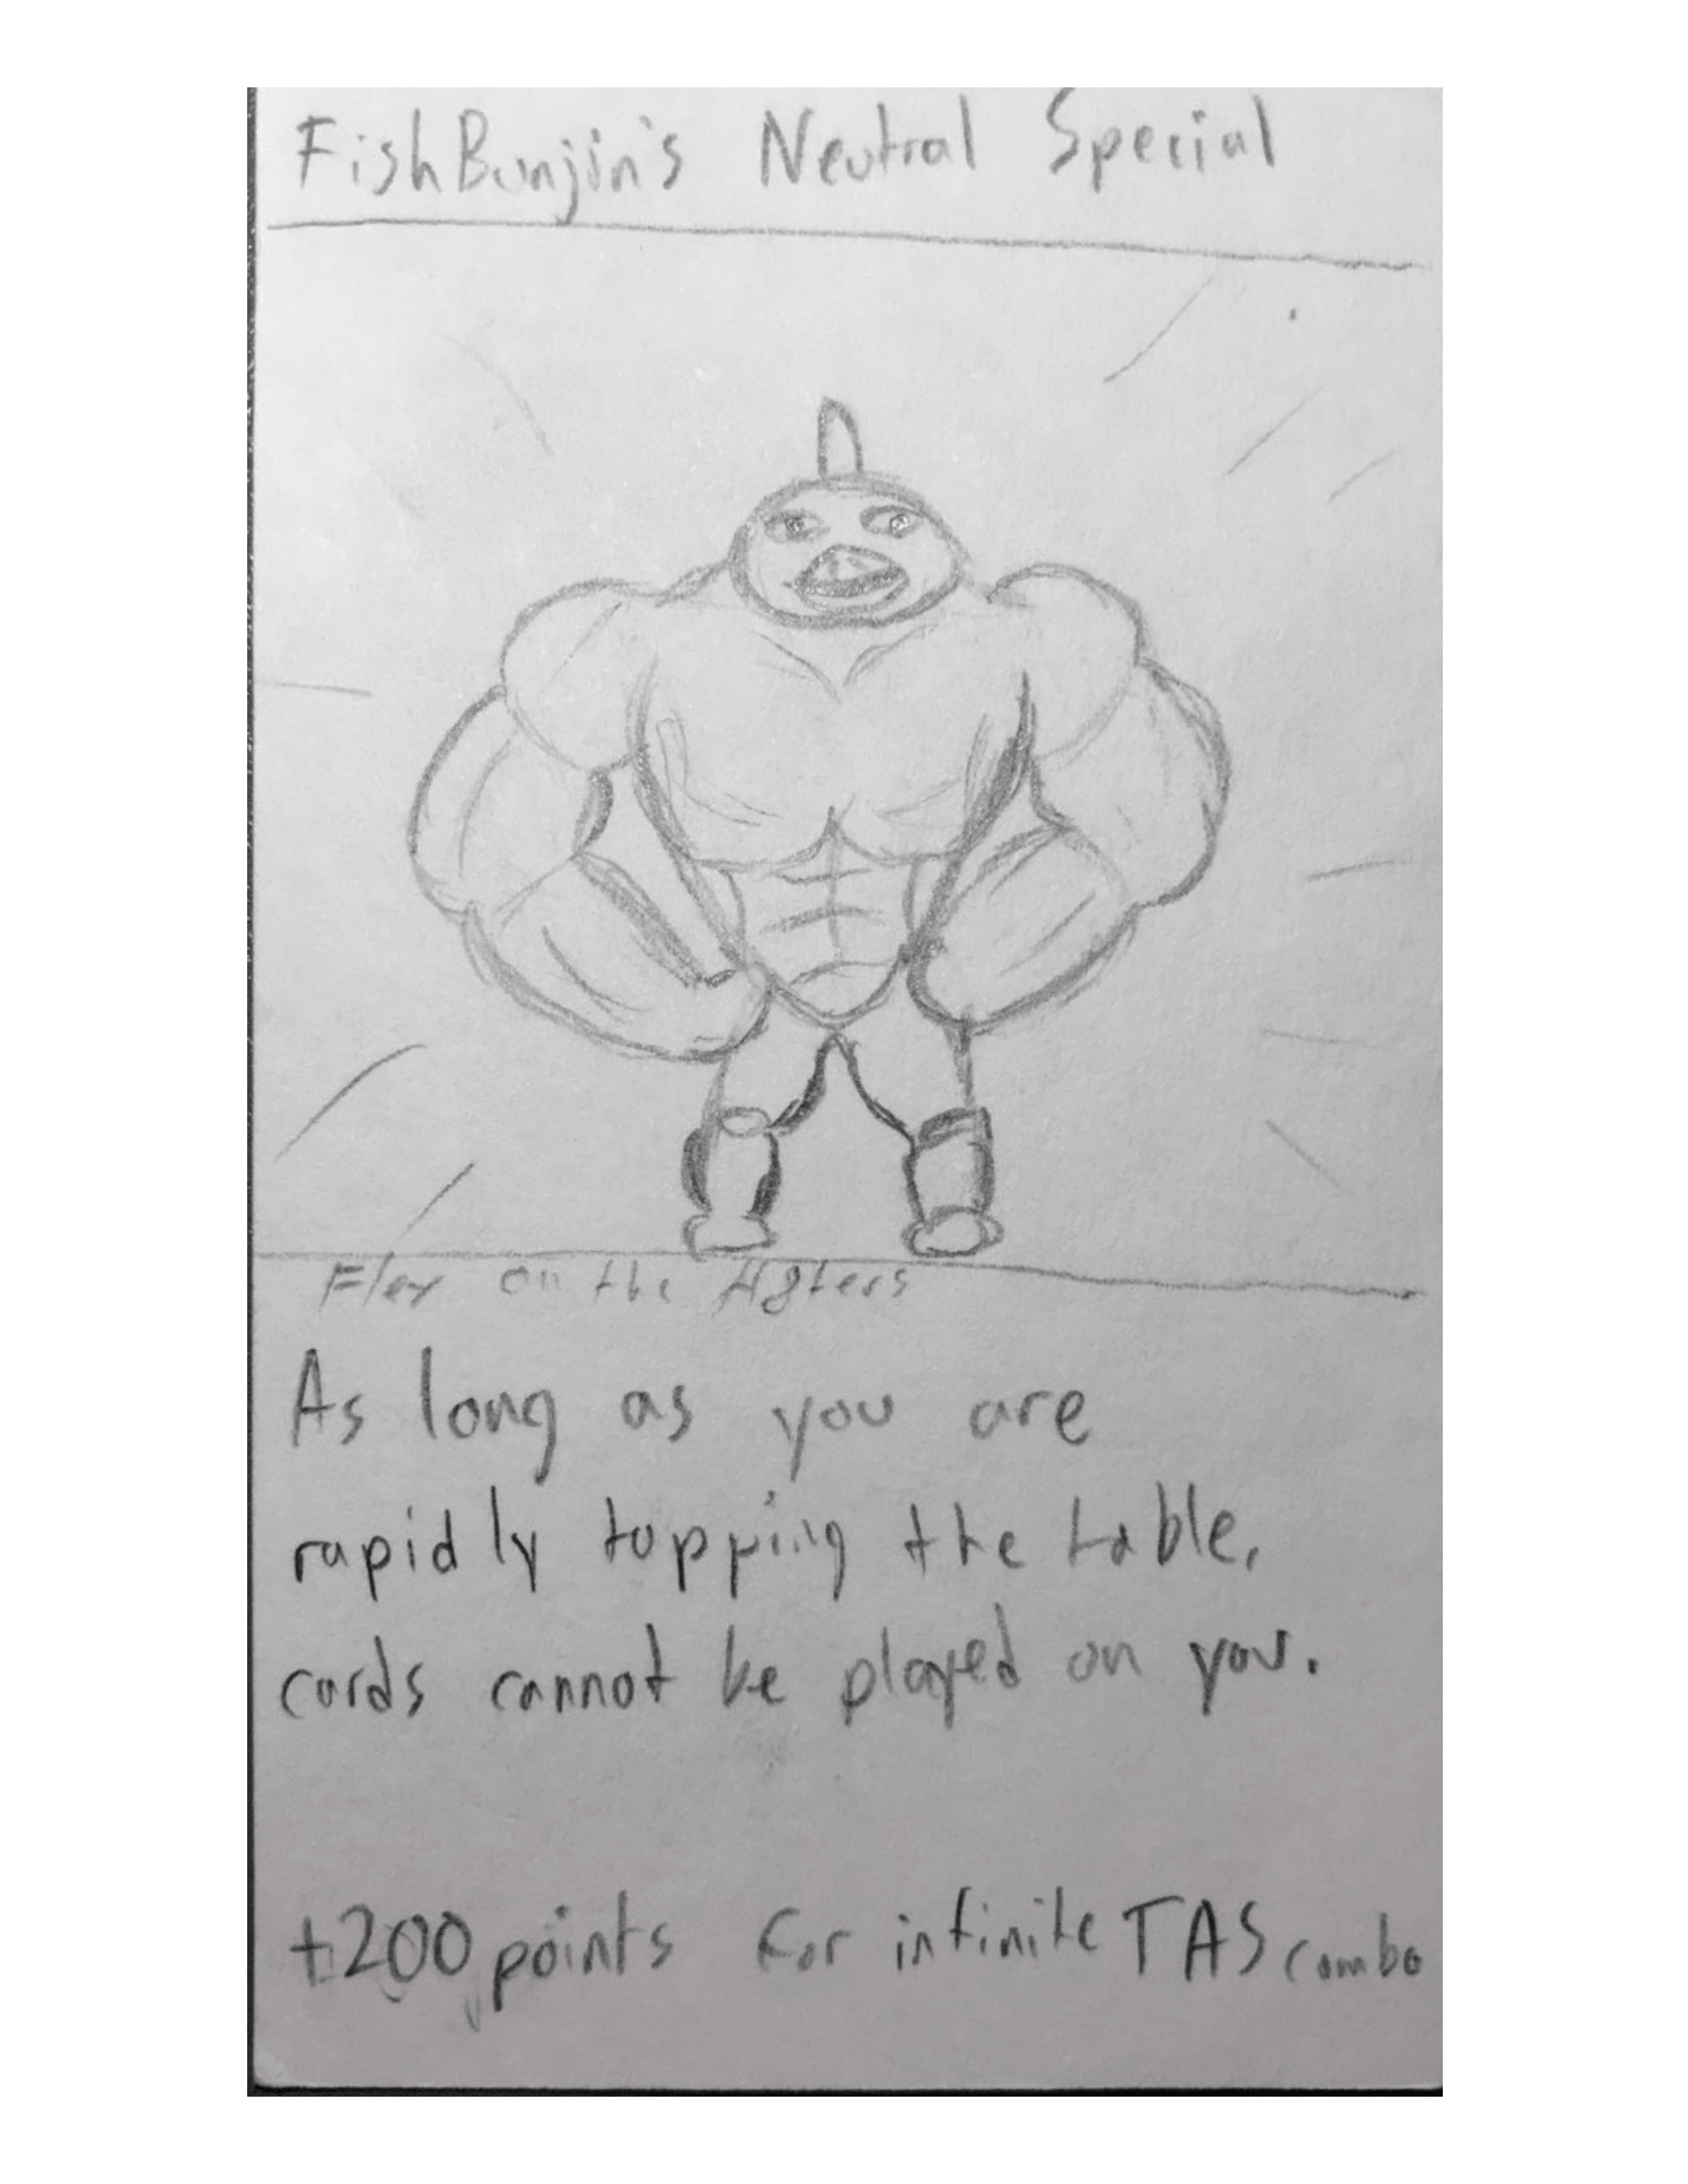 FishBunjin's Neutral Special
Flex on the Haters
As long as you are
rapidly tapping the table,
cards cannot be played on you.
+200 points for infinite TAS combo